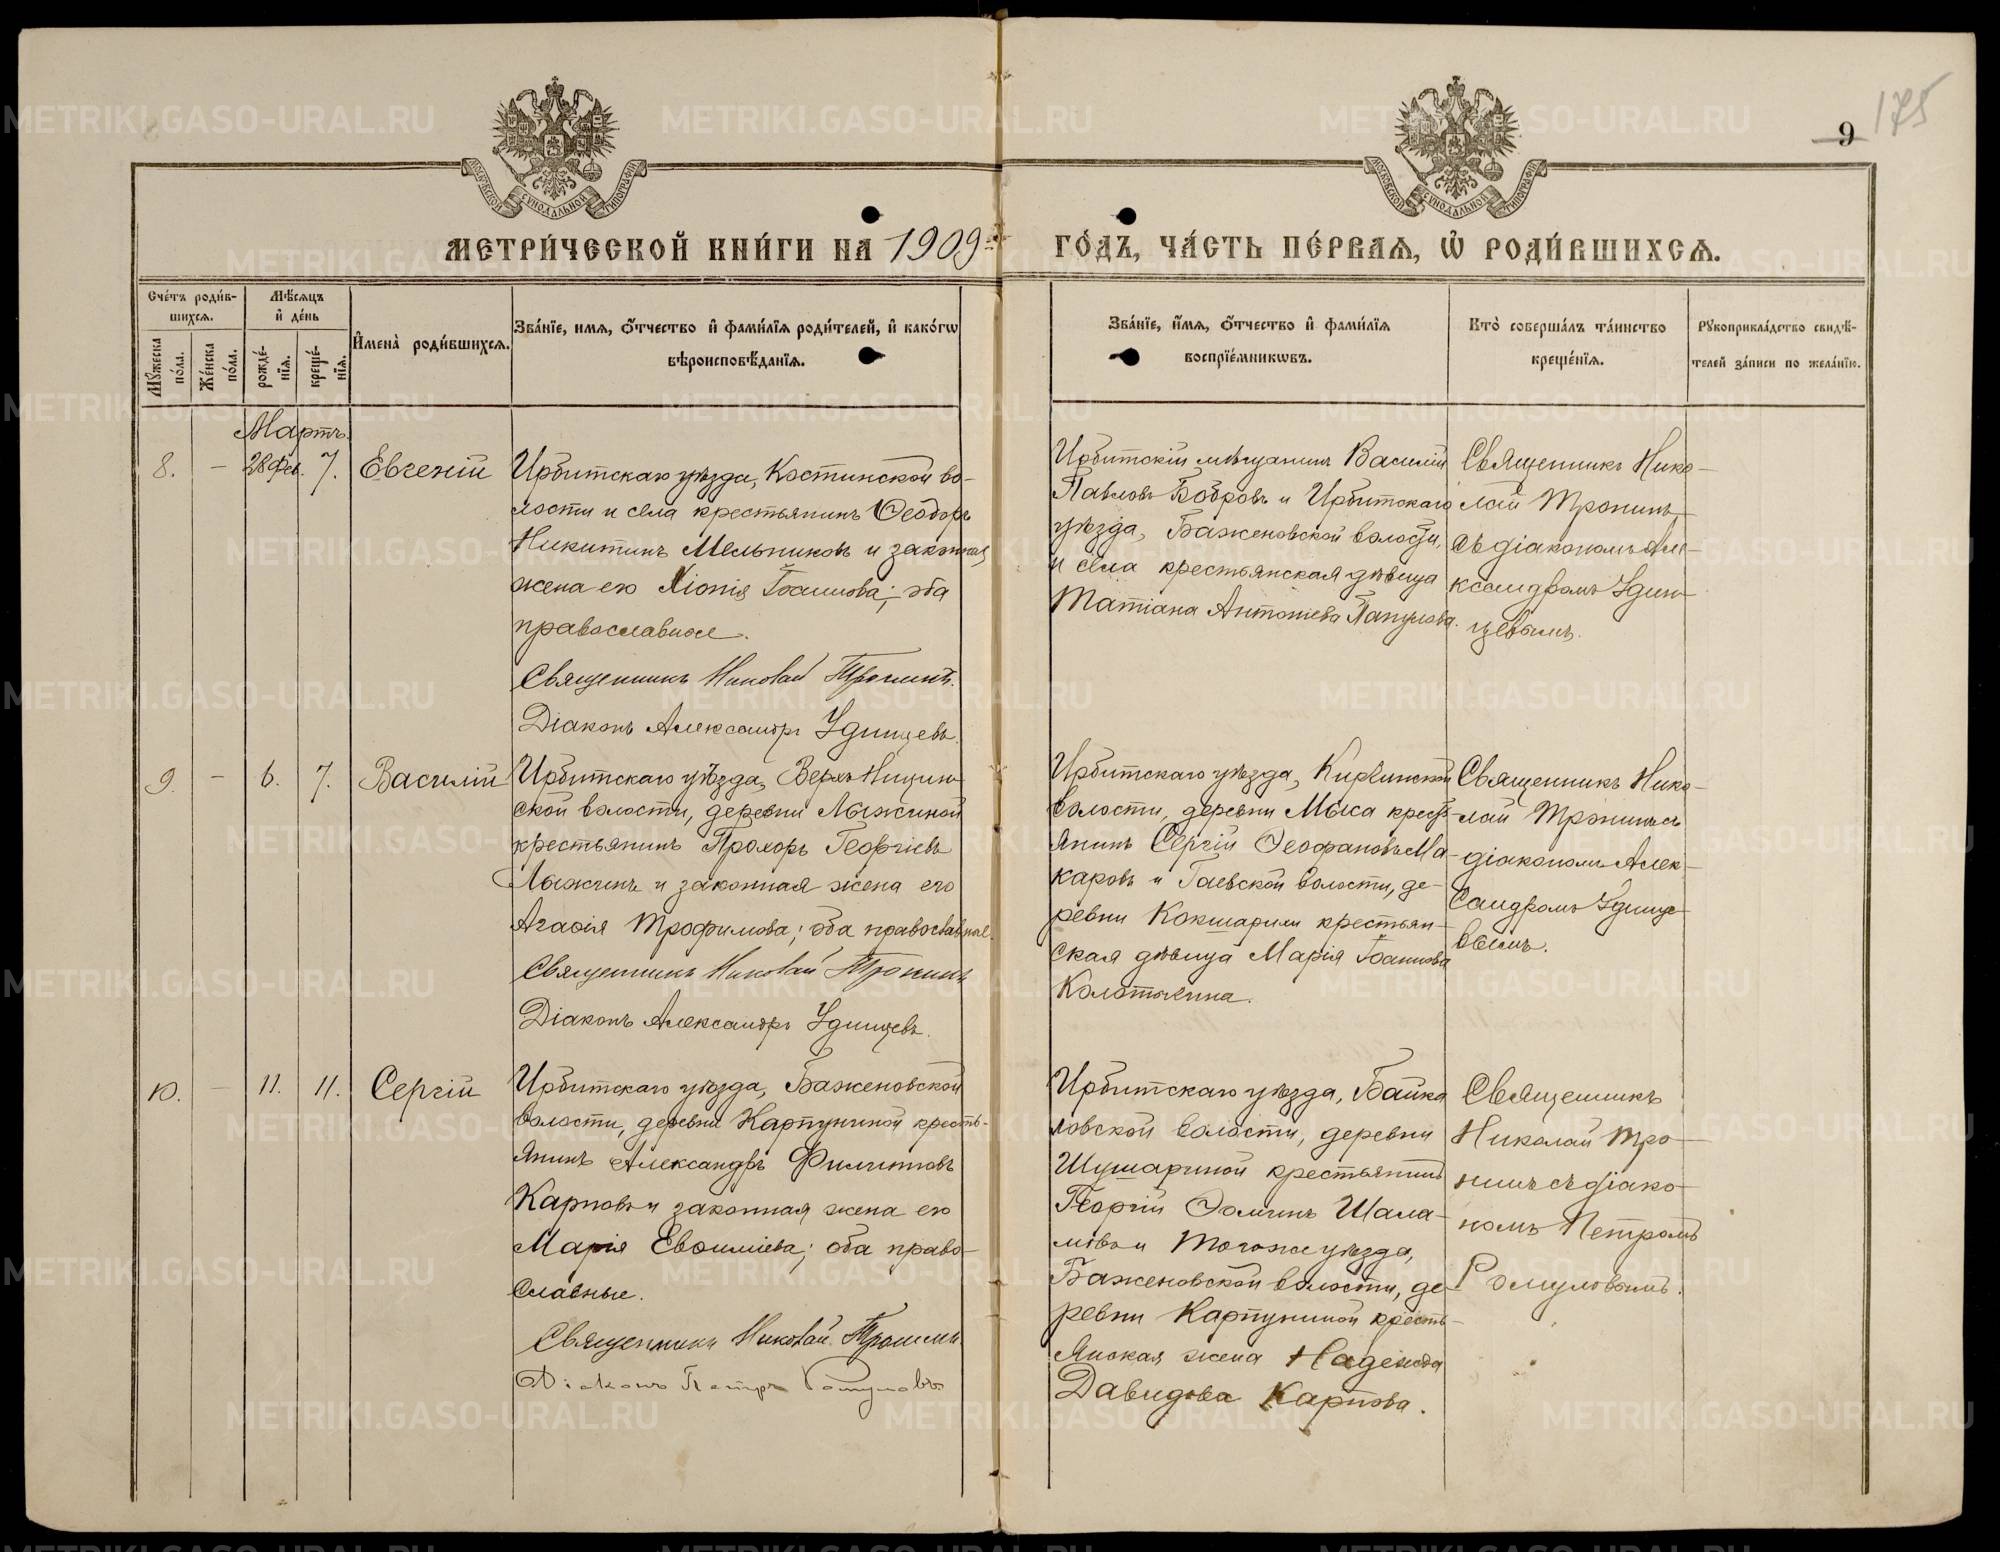 175
9
МОСКОВСКОЙ СѴНОДАЛЬНОЙ ТИПОГРАФІИ
МОСКОВСКОЙ СѴНОДАЛЬНОЙ ТИПОГРАФІИ
МЕТРИ́ЧЕСКОЙ КНИ́ГИ НА 1909 ГО́ДЪ, ЧА́СТЬ ПЕ́РВАѦ, Ѡ҆ РОДИ́ВШИХСѦ.
Сче́тъ роди́в-
шихсѧ.
Мꙋ́жеска по́ла.
Же́нска по́ла.
Мѣ́сѧцъ
и҆ де́нь
рожде́-
нїѧ.
креще́-
нїѧ.
И҆мена̀ роди́вшихсѧ.
Зва́нїе, имѧ, ѻ҆́тчество и҆ фами́лїѧ роди́телей, и҆ како́гѡ
вѣроисповѣ́данїѧ.
Зва́нїе, и҆́мѧ, ѻ҆́тчество и҆ фами́лїѧ
воспрїе́мникѡвъ.
Кто̀ соверша́лъ та́инство
креще́нїѧ.
Рꙋкоприкла́дство свидѣ́-
телей за́писи по жела́нїю.
Мартъ.
8. – 28 Фев. 7. Евгеній
Ирбитскаго уѣзда, Костинской во-
лости и села крестьянинъ Ѳеодоръ
Никитинъ Мельниковъ и законная
жена его Хіонія Іоаннова; оба
православные.
Священникъ Николай Тронинъ.
Діаконъ Александръ Удинцевъ.
Ирбитскій мѣщанинъ Василій
Павловъ Бобровъ и Ирбитскаго
уѣзда, Баженовской волости,
и села крестьянская дѣвица
Татіана Антоніева Папулова.
Священникъ Нико-
лай Тронинъ
съ діакономъ Але-
ксандромъ Удин-
цевымъ.
9. – 6. 7. Василій
Ирбитскаго уѣзда, Верхъ-Ницин-
ской волости, деревни Лыжиной
крестьянинъ Прохоръ Георгіевъ
Лыжинъ и законная жена его
Агаѳія Трофимова; оба православные.
Священникъ Николай Тронинъ
Діаконъ Александръ Удинцевъ.
Ирбитскаго уѣзда, Киргинской
волости, деревни Мыса кресть-
янинъ Сергій Ѳеофановъ Ма-
каровъ и Гаевской волости, де-
ревни Кокшариги крестьян-
ская дѣвица Марія Іоаннова
Колотыгина.
Священникъ Нико-
лай Тронинъ съ
діакономъ Алек-
сандромъ Удинце-
вымъ.
10. – 11. 11. Сергій
Ирбитскаго уѣзда, Баженовской
волости, деревни Карпуниной кресть-
янинъ Александръ Филиповъ
Карповъ и законная жена его
Марія Евѳиміева; оба право-
славные.
Священникъ Николай Тронинъ.
Діаконъ Петръ Ромуловъ
Ирбитскаго уѣзда, Байка-
ловской волости, деревни
Шушариной крестьянинъ
Георгій Ѳоминъ Шала-
мовъ и того же уѣзда,
Баженовской волости, де-
ревни Карпуниной кресть-
янская жена Надежда
Давидова Карпова.
Священникъ
Николай Тро-
нинъ съ діако-
номъ Петромъ
Ромуловымъ.